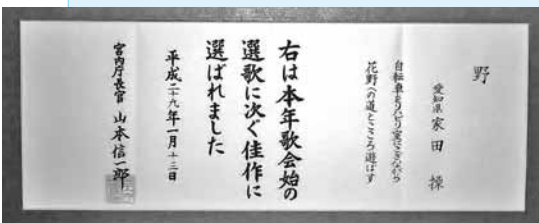 野
愛知県 家田 操
自転車をリハビリ室にこぎながら
花野への道をこころ遊ばす
右は本年歌会始の
選歌に次ぐ佳作に
選ばれました
平成二十九年一月十三日
宮内庁長官 山本信一郎